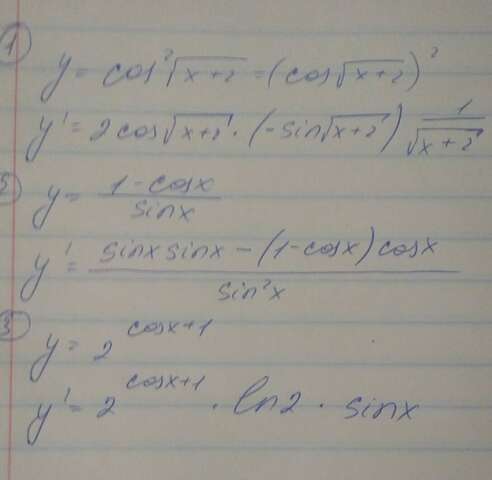 1
y = cos²√(x+2) = (cos√(x+2))²
y' = 2cos√(x+2) · (-sin√(x+2)) 1/√(x+2)
2
y = (1-cosx)/(sinx)
y' = (sinx sinx - (1-cosx)cosx)/(sin²x)
3
y = 2^(cosx+1)
y' = 2^(cosx+1) · ln2 · sinx